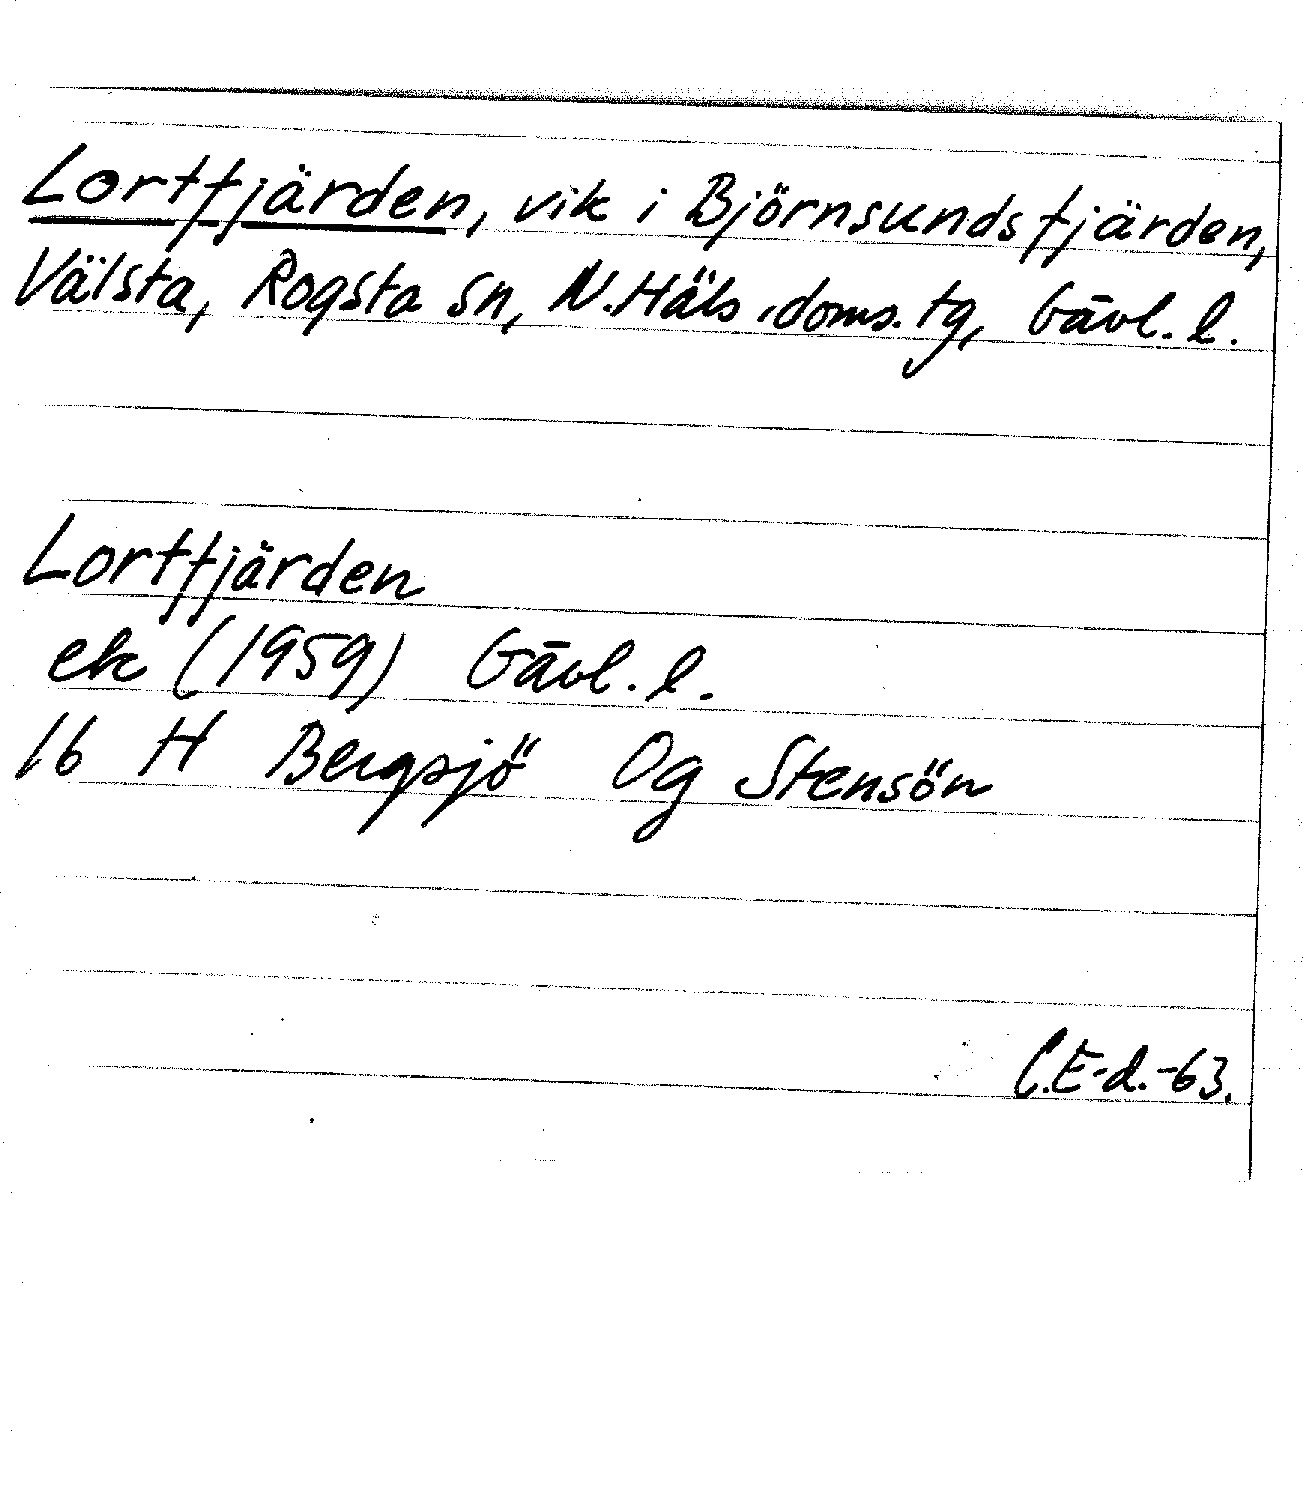 Lortfjärden, vik i Björnsundsfjärden,
Välsta, Rogsta sn, N. Häls. doms. tg, Gävl. l.
Lortfjärden
ek (1959) Gävl. l.
16 H Bergsjö Og Stensön
C.E-d.-63.